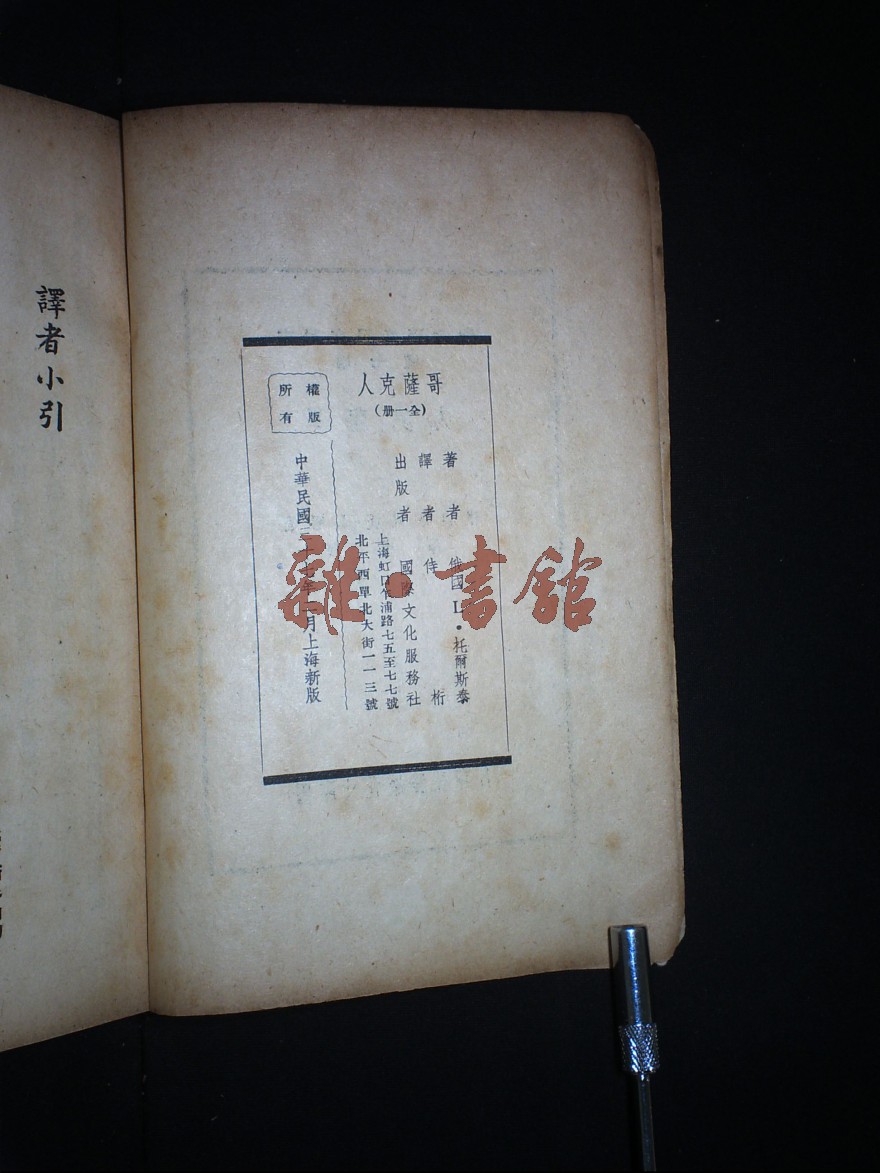 哥薩克人
(全一册)
著者 俄國L・托爾斯泰
譯者 侍桁
出版者 國際文化服務社
上海虹口乍浦路七五至七七號
北平西單北大街一一三號
中華民國 月上海新版
權版
所有
譯者小引
雜・書館